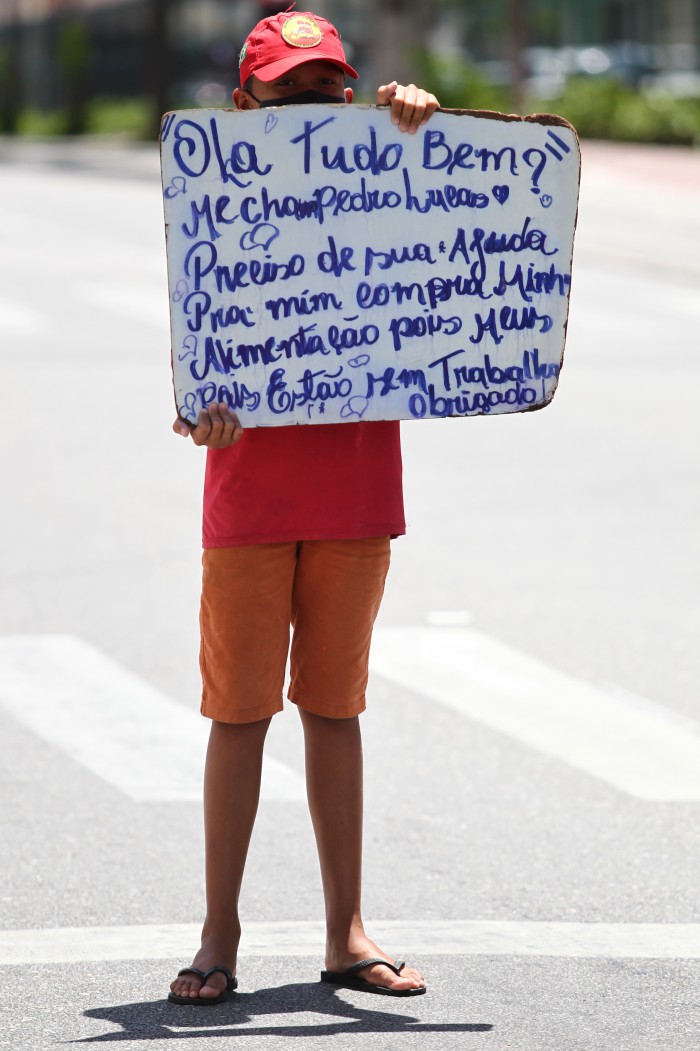 "Ola Tudo Bem?"
Me cham Pedro Lucas
Preciso de sua Ajuda
Pra mim compra Minh
Alimentação pois Meus
pais Estão sem Trabalho
Obrigado!